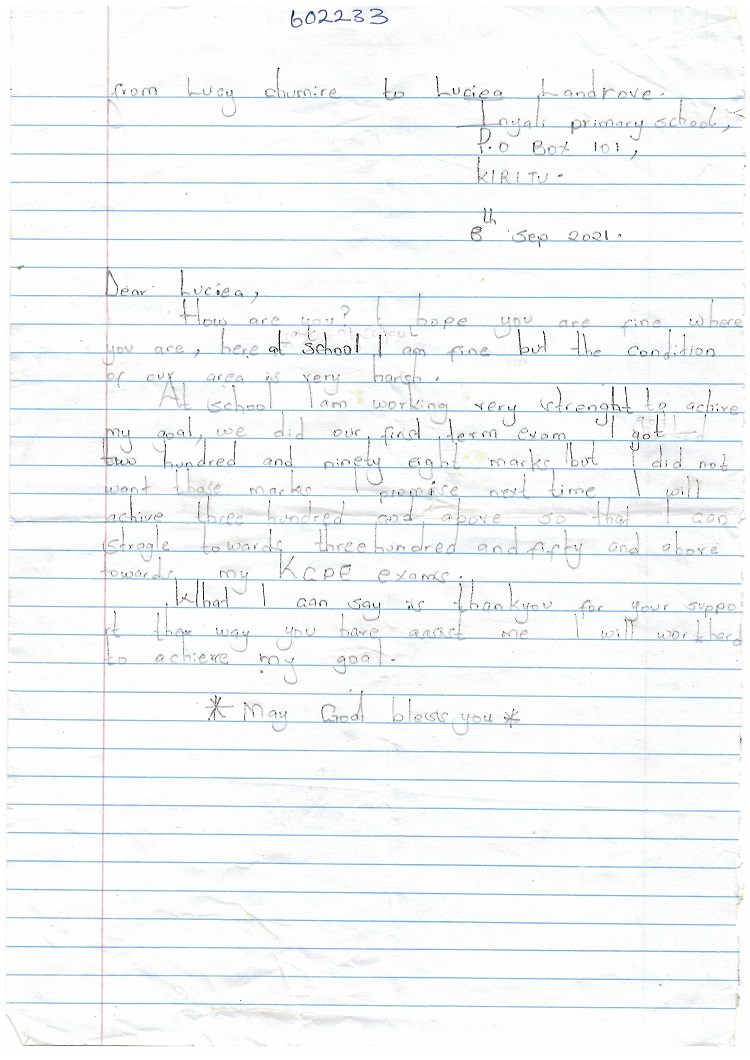 602233
from Lucy chumire to Luciea Landrove.
Inyali primary school,
P.O BOX 101,
KIRITU.
8th Sep 2021.
Dear Luciea,
How are you? I hope you are fine where
you are, here at school I am fine but the condition
of our area is very harsh.
At school I am working very strenght to achive
my goal, we did our find term exam I got
two hundred and ninety eight marks but I did not
want those marks I promise next time I will
achive three hundred and above so that I can
stragle towards three hundred and fifty and above
towards my KCPE exams.
What I can say is thankyou for your suppo
rt the way you have assist me I will workhard
to achieve my goal.
* May God bless you *